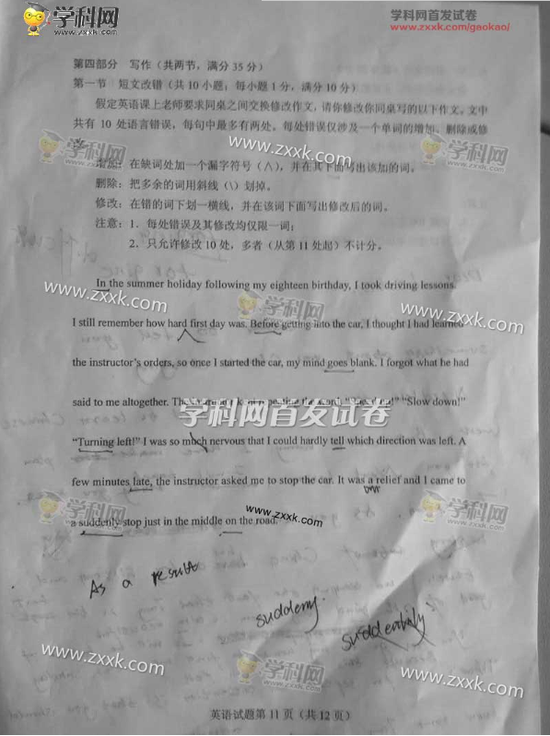 学科网
www.zxxk.com
学科网首发试卷
www.zxxk.com/gaokao/
第四部分 写作（共两节，满分 35 分）
第一节 短文改错（共 10 小题，每小题 1 分，满分 10 分）
假定英语课上老师要求同桌之间交换修改作文，请你修改你同桌写的以下作文。文中
共有 10 处语言错误，每句中最多有两处。每处错误仅涉及一个单词的增加、删除或修
学科网 www.zxxk.com
增加：在缺词处加一个漏字符号（∧），并在其下面写出该加的词。
删除：把多余的词用斜线（\）划掉。
修改：在错的词下划一横线，并在该词下面写出修改后的词。
注意：1．每处错误及其修改均仅限一词；
2．只允许修改 10 处，多者（从第 11 处起）不计分。
In the summer holiday following my eighteen birthday, I took driving lessons.
www.zxxk.com 学科网 www.zxxk.com
I still remember how hard first day was. Before getting into the car, I thought I had learned
the instructor's orders, so once I started the car, my mind goes blank. I forgot what he had
said to me altogether. The
学科网首发试卷
"Slow down!"
"Turning left!" I was so much nervous that I could hardly tell which direction was left. A
few minutes late, the instructor asked me to stop the car. It was a relief and I came to
学科网 www.zxxk.com 学科网
a suddenly stop just in the middle on the road.
As a result
学科网
www.zxxk.com 学科网 www.zxxk.com
英语试题第 11 页（共 12 页）